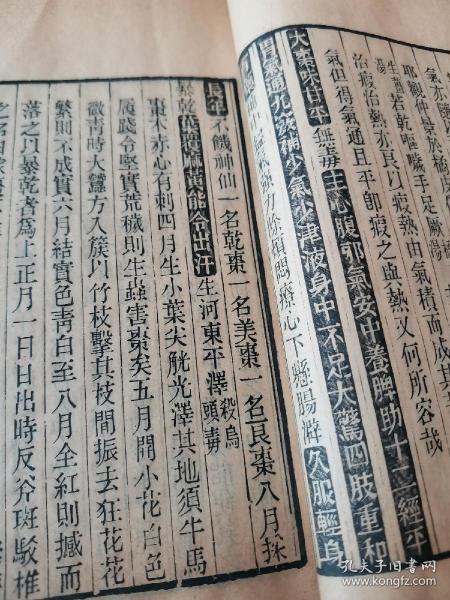 氣亦
耶觀仲景於橘皮
生薑若乾嘔噦手足厥湯
治痰治熱亦良以痰熱由氣積而成其
氣但得氣通且平卽痰之與熱又何所容哉
大棗味甘平無毒主心腹邪氣安中養脾助十二經平
胃氣通九竅補少氣少津液身中不足大驚四肢重和
強力除煩悶療心下懸腸澼久服輕身
長年不饑神仙一名乾棗一名美棗一名良棗八月採
暴乾葉覆麻黃能令出汗生河東平澤殺烏頭毒
棗木赤心有刺四月生小葉尖觥光澤其地須牛馬
履踐令堅實荒穢則生蟲害棗矣五月開小花白色
微青時大蠶方入簇以竹枝擊其枝間振去狂花花
繁則不成實六月結實色青白至八月全紅則撼而
落之以暴乾者爲上正月一日日出時反斧斑駁椎
之名
孔夫子旧书网
https://book.kongfz.com